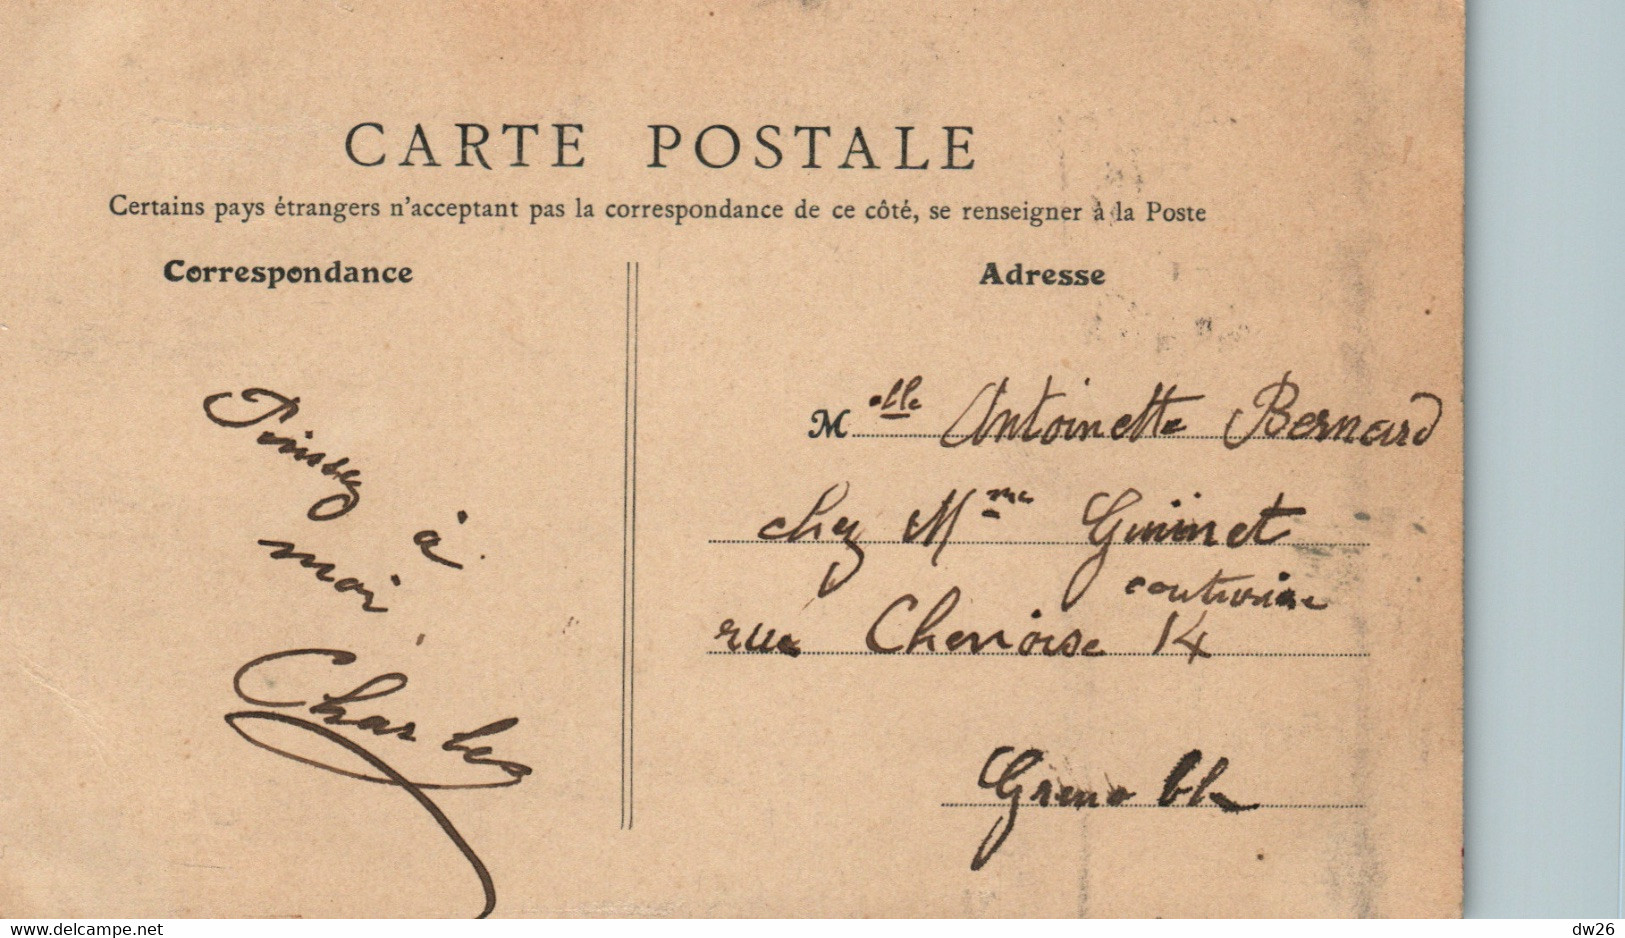 CARTE POSTALE
Certains pays étrangers n'acceptant pas la correspondance de ce côté, se renseigner à la Poste
Correspondance
Pensez
à
moi
Charles
Adresse
Melle Antoinette Bernard
chez Mme Guimet
couturière
rue Chenoise 14
Grenoble
delcampe.net
dw26